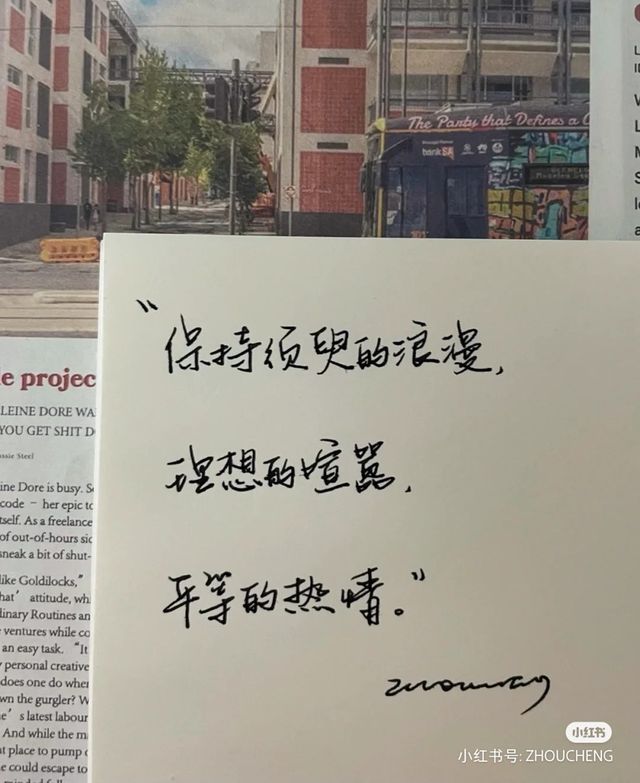 The Party that Defines a
bankSA
"保持须臾的浪漫,
理想的喧嚣,
平等的热情。"
zhoucheng
e projec
LEINE DORE WA
YOU GET SHIT D
ssie Steel
ine Dore is busy. S
code – her epic to
tself. As a freelance
of out-of-hours sid
sneak a bit of shut-
like Goldilocks,"
hat' attitude, wh
dinary Routines an
ventures while co
an easy task. "It
personal creative
does one do when
wn the gurgler? W
e's latest labour
And while the m
at place to pump
e could escape to
小红书
小红书号: ZHOUCHENG